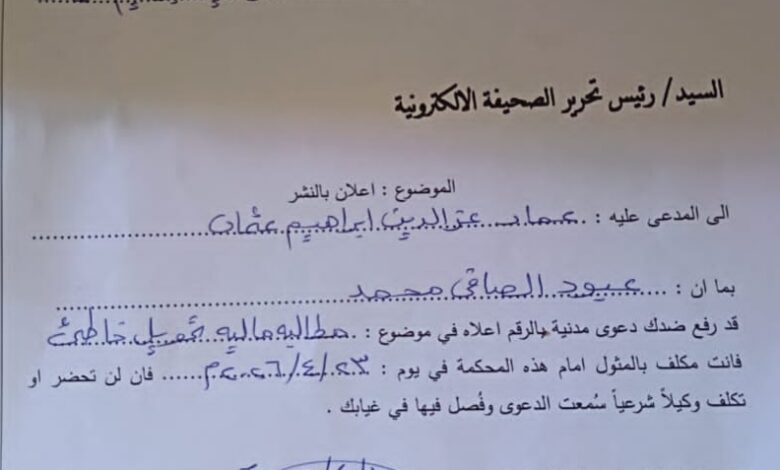 السيد/ رئيس تحرير الصحيفة الالكترونية
الموضوع : اعلان بالنشر
الى المدعى عليه : عماد عزالدين ابراهيم عثمان
بما ان : عبود الصافي محمد
قد رفع ضدك دعوى مدنية بالرقم اعلاه في موضوع : مطالبه ماليه تحويل خاطئ
فانت مكلف بالمثول امام هذه المحكمة في يوم : ٢٣/٤/٢٠٢٦م فان لن تحضر او
تكلف وكيلاً شرعياً سُمعت الدعوى وفُصل فيها في غيابك .